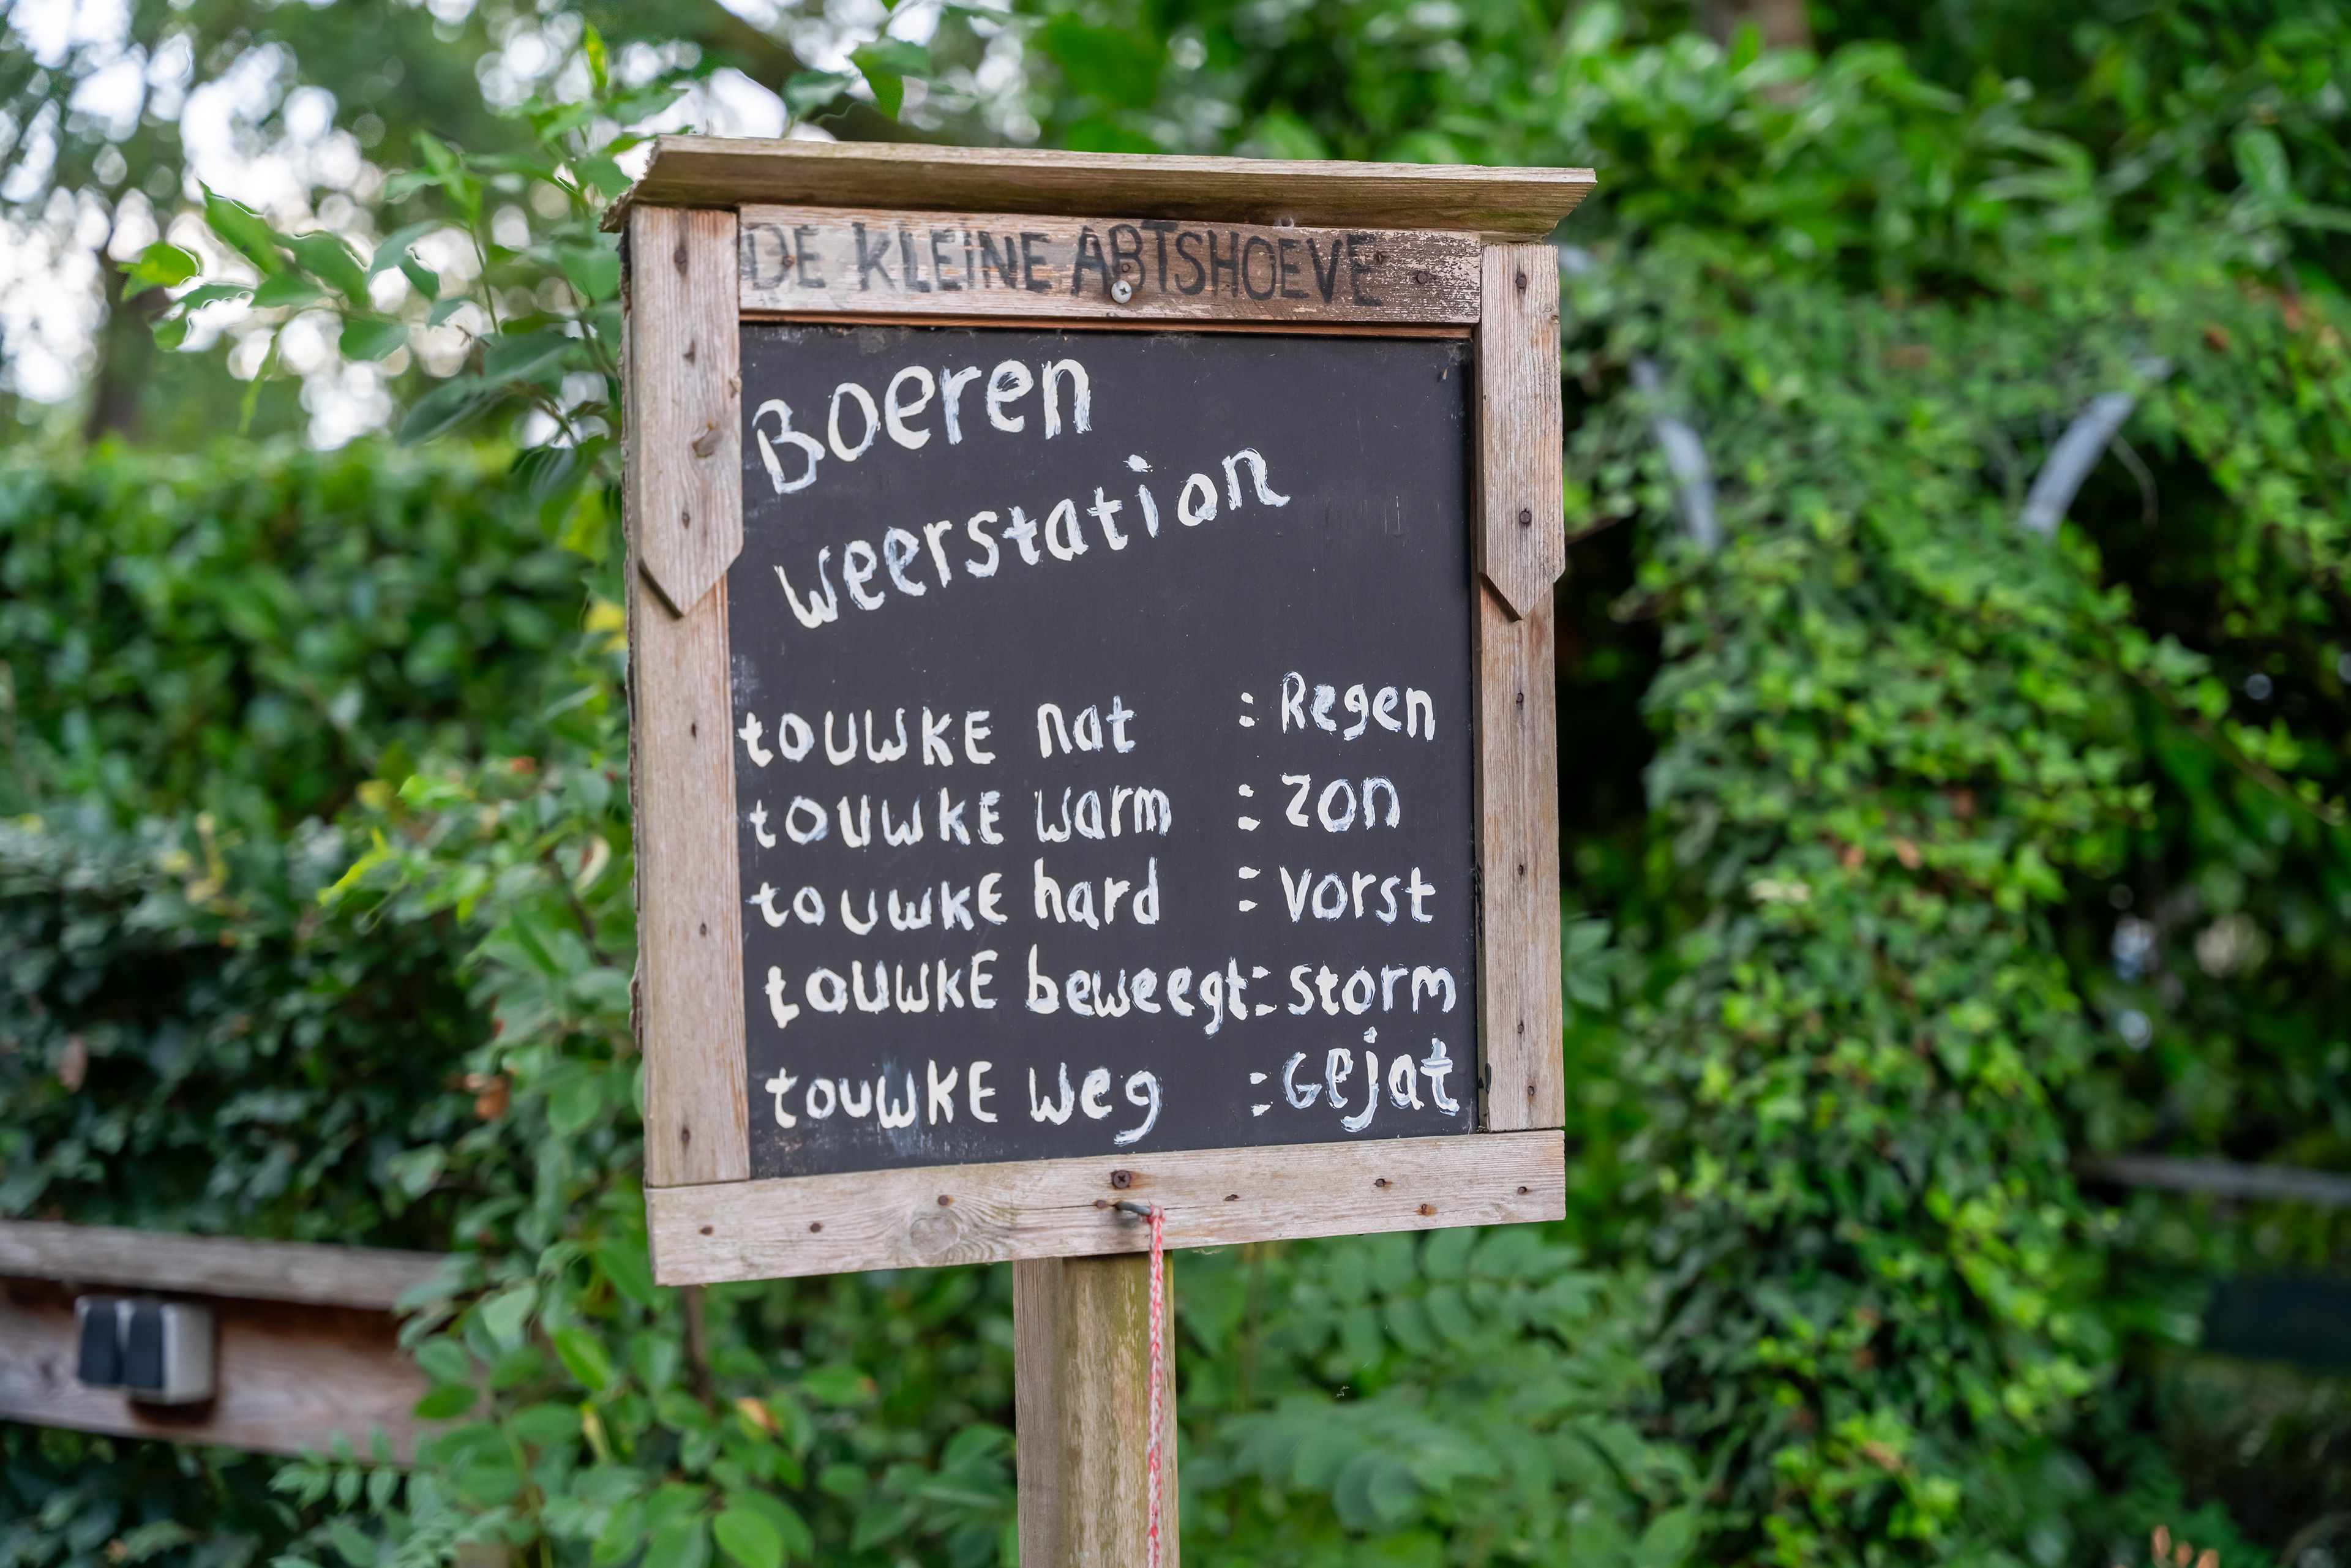 DE KLEINE ABTSHOEVE
Boeren
weerstation
touwke nat : Regen
touwke warm : Zon
touwke hard : Vorst
touwke beweegt : Storm
touwke weg : Gejat